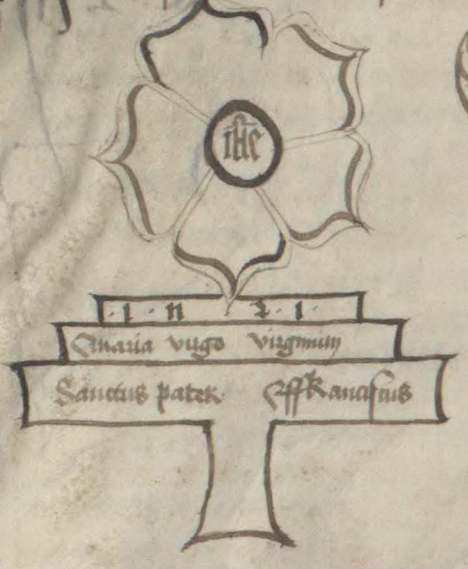 ihc
·I· N ·R·I·
Maria virgo virginum
Sanctus pater Ffranciscus